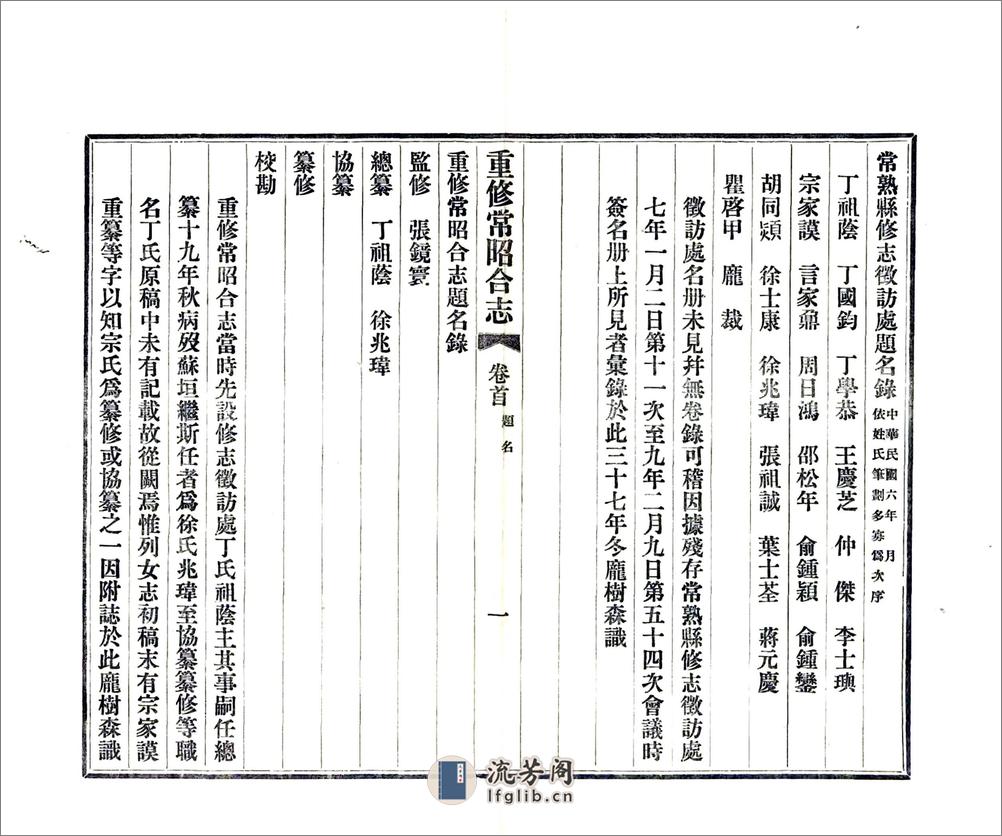 常熟縣修志徵訪處題名錄 中華民國六年 月
依姓氏筆劃多寡爲次序
丁祖蔭 丁國鈞 丁學恭 王慶芝 仲 傑 李士璵
宗家謨 言家鼐 周日鴻 邵松年 俞鍾穎 俞鍾鑾
胡同熲 徐士康 徐兆瑋 張祖誠 葉士荃 蔣元慶
瞿啓甲 龐 裁
徵訪處名册未見幷無卷錄可稽因據殘存常熟縣修志徵訪處
七年一月二日第十一次至九年二月九日第五十四次會議時
簽名册上所見者彙錄於此三十七年冬龐樹森識
重修常昭合志 卷首 題名 一
重修常昭合志題名錄
監修 張鏡寰
總纂 丁祖蔭 徐兆瑋
協纂
纂修
校勘
重修常昭合志當時先設修志徵訪處丁氏祖蔭主其事嗣任總
纂十九年秋病歿蘇垣繼斯任者爲徐氏兆瑋至協纂纂修等職
名丁氏原稿中未有記載故從闕焉惟列女志初稿末有宗家謨
重纂等字以知宗氏爲纂修或協纂之一因附誌於此龐樹森識
流芳阁
lfglib.cn